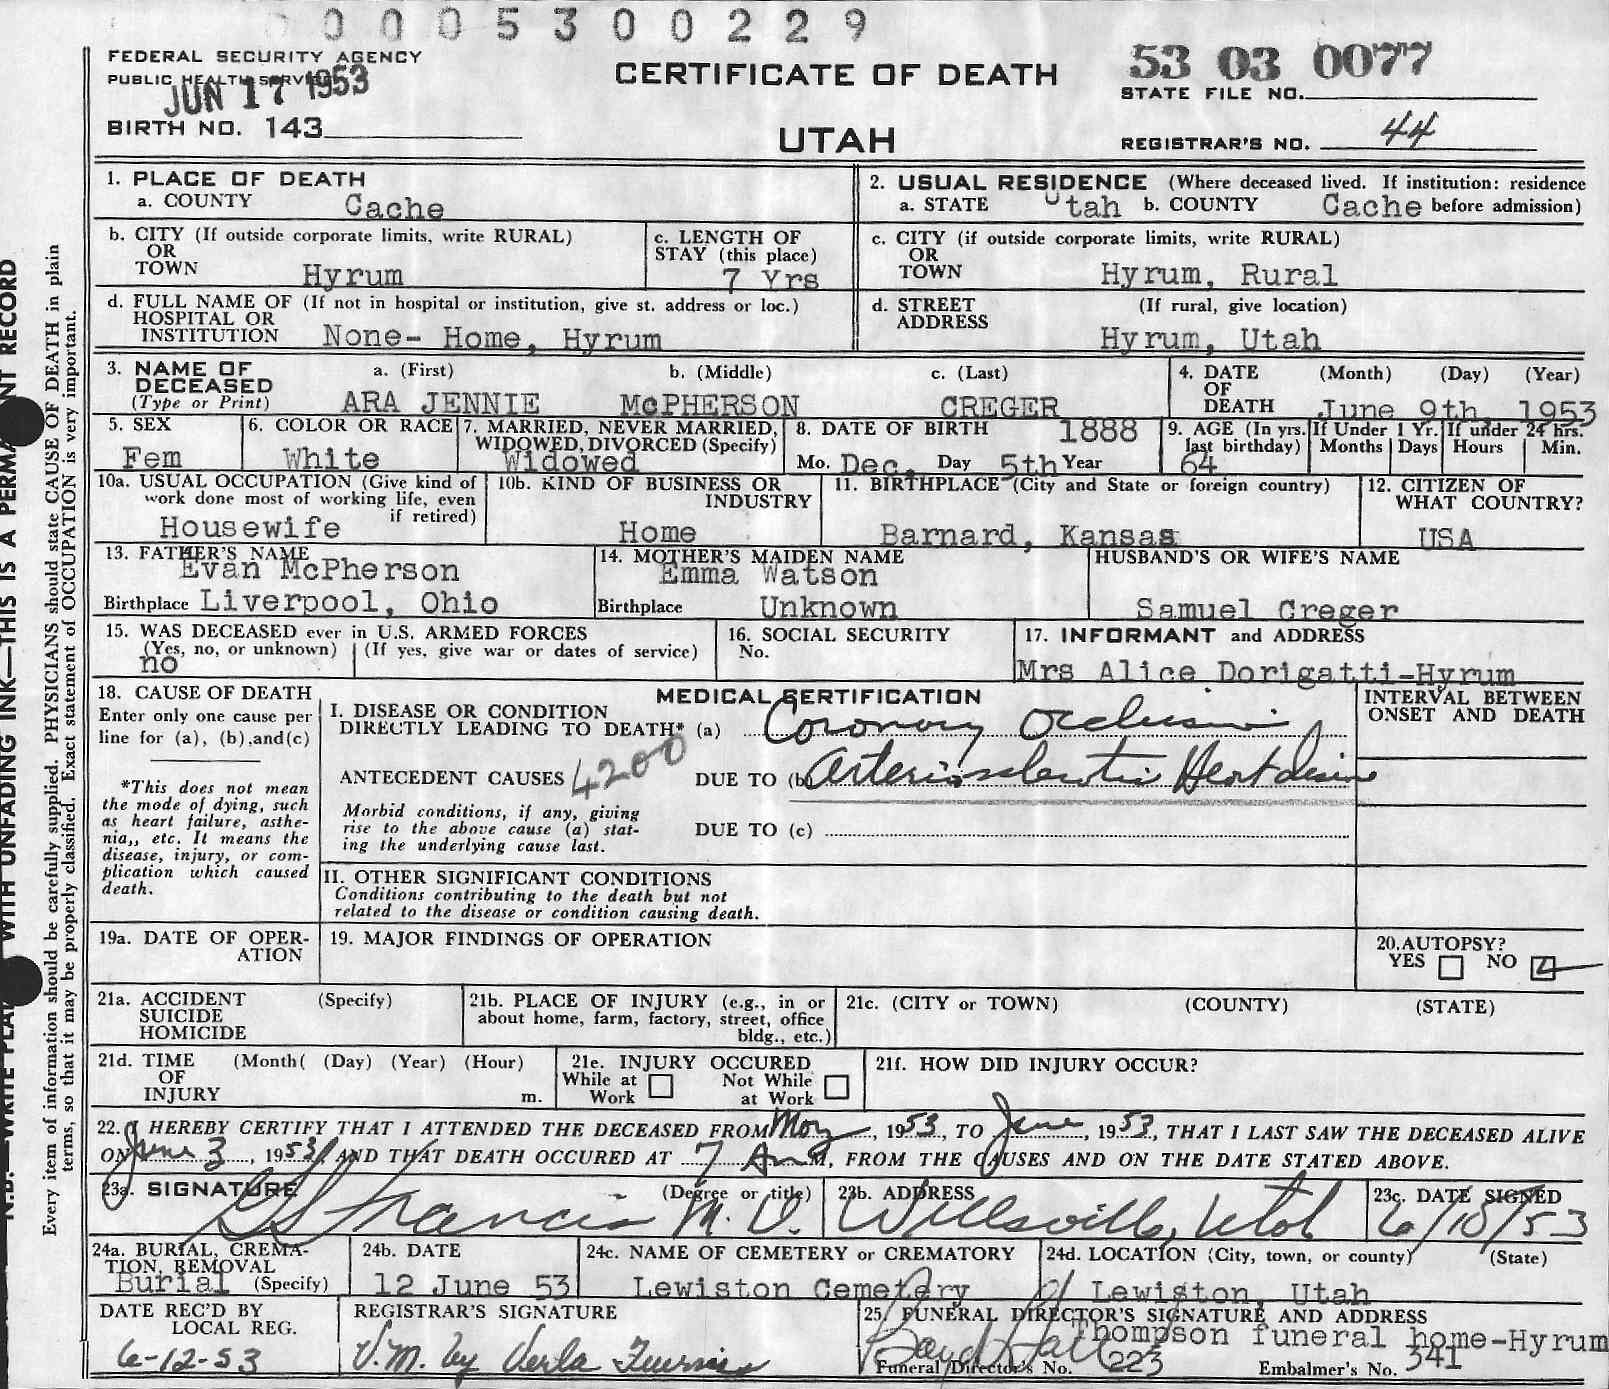 0005300229
FEDERAL SECURITY AGENCY
PUBLIC HEALTH SERVICE
JUN 17 1953
BIRTH NO. 143
CERTIFICATE OF DEATH
UTAH
53 03 0077
STATE FILE NO.
REGISTRAR'S NO. 44
N.B.—WRITE PLAINLY WITH UNFADING INK—THIS IS A PERMANENT RECORD
Every item of information should be carefully supplied. PHYSICIANS should state CAUSE OF DEATH in plain
terms, so that it may be properly classified. Exact statement of OCCUPATION is very important.
1. PLACE OF DEATH
a. COUNTY Cache
2. USUAL RESIDENCE (Where deceased lived. If institution: residence
a. STATE Utah b. COUNTY Cache before admission)
b. CITY (If outside corporate limits, write RURAL)
OR
TOWN Hyrum
c. LENGTH OF
STAY (this place)
7 Yrs
c. CITY (if outside corporate limits, write RURAL)
OR
TOWN Hyrum, Rural
d. FULL NAME OF (If not in hospital or institution, give st. address or loc.)
HOSPITAL OR
INSTITUTION None- Home, Hyrum
d. STREET (If rural, give location)
ADDRESS
Hyrum, Utah
3. NAME OF a. (First) b. (Middle) c. (Last)
DECEASED
(Type or Print) ARA JENNIE McPHERSON CREGER
4. DATE (Month) (Day) (Year)
OF
DEATH June 9th, 1953
5. SEX
Fem
6. COLOR OR RACE
White
7. MARRIED, NEVER MARRIED,
WIDOWED, DIVORCED (Specify)
Widowed
8. DATE OF BIRTH 1888
Mo. Dec. Day 5th Year
9. AGE (In yrs.
last birthday)
64
If Under 1 Yr.
Months Days
If under 24 hrs.
Hours Min.
10a. USUAL OCCUPATION (Give kind of
work done most of working life, even
if retired)
Housewife
10b. KIND OF BUSINESS OR
INDUSTRY
Home
11. BIRTHPLACE (City and State or foreign country)
Barnard, Kansas
12. CITIZEN OF
WHAT COUNTRY?
USA
13. FATHER'S NAME
Evan McPherson
Birthplace Liverpool, Ohio
14. MOTHER'S MAIDEN NAME
Emma Watson
Birthplace Unknown
HUSBAND'S OR WIFE'S NAME
Samuel Creger
15. WAS DECEASED ever in U.S. ARMED FORCES
(Yes, no, or unknown) (If yes, give war or dates of service)
no
16. SOCIAL SECURITY
No.
17. INFORMANT and ADDRESS
Mrs Alice Dorigatti-Hyrum
18. CAUSE OF DEATH
Enter only one cause per
line for (a), (b), and(c)
*This does not mean
the mode of dying, such
as heart failure, asthe-
nia,, etc. It means the
disease, injury, or com-
plication which caused
death.
MEDICAL CERTIFICATION
I. DISEASE OR CONDITION
DIRECTLY LEADING TO DEATH* (a) Coronary Occlusion
ANTECEDENT CAUSES 4200 DUE TO (b) Arteriosclerotic Heart disease
Morbid conditions, if any, giving
rise to the above cause (a) stat-
ing the underlying cause last.
DUE TO (c)
INTERVAL BETWEEN
ONSET AND DEATH
II. OTHER SIGNIFICANT CONDITIONS
Conditions contributing to the death but not
related to the disease or condition causing death.
19a. DATE OF OPER-
ATION
19. MAJOR FINDINGS OF OPERATION
20. AUTOPSY?
YES NO
21a. ACCIDENT (Specify)
SUICIDE
HOMICIDE
21b. PLACE OF INJURY (e.g., in or
about home, farm, factory, street, office
bldg., etc.)
21c. (CITY or TOWN) (COUNTY) (STATE)
21d. TIME (Month( (Day) (Year) (Hour)
OF
INJURY m.
21e. INJURY OCCURED
While at Not While
Work at Work
21f. HOW DID INJURY OCCUR?
22. I HEREBY CERTIFY THAT I ATTENDED THE DECEASED FROM May, 1953, TO June, 1953, THAT I LAST SAW THE DECEASED ALIVE
ON June 3, 1953, AND THAT DEATH OCCURED AT 7 A M, FROM THE CAUSES AND ON THE DATE STATED ABOVE.
23a. SIGNATURE (Degree or title)
Francis M.D.
23b. ADDRESS
Wellsville, Utah
23c. DATE SIGNED
6/10/53
24a. BURIAL, CREMA-
TION, REMOVAL
Burial (Specify)
24b. DATE
12 June 53
24c. NAME OF CEMETERY or CREMATORY
Lewiston Cemetery
24d. LOCATION (City, town, or county) (State)
Lewiston, Utah
DATE REC'D BY
LOCAL REG.
6-12-53
REGISTRAR'S SIGNATURE
V.M. by Verla
25. FUNERAL DIRECTOR'S SIGNATURE AND ADDRESS
Boyd Hall Thompson funeral home-Hyrum
Funeral Director's No. 223 Embalmer's No. 341